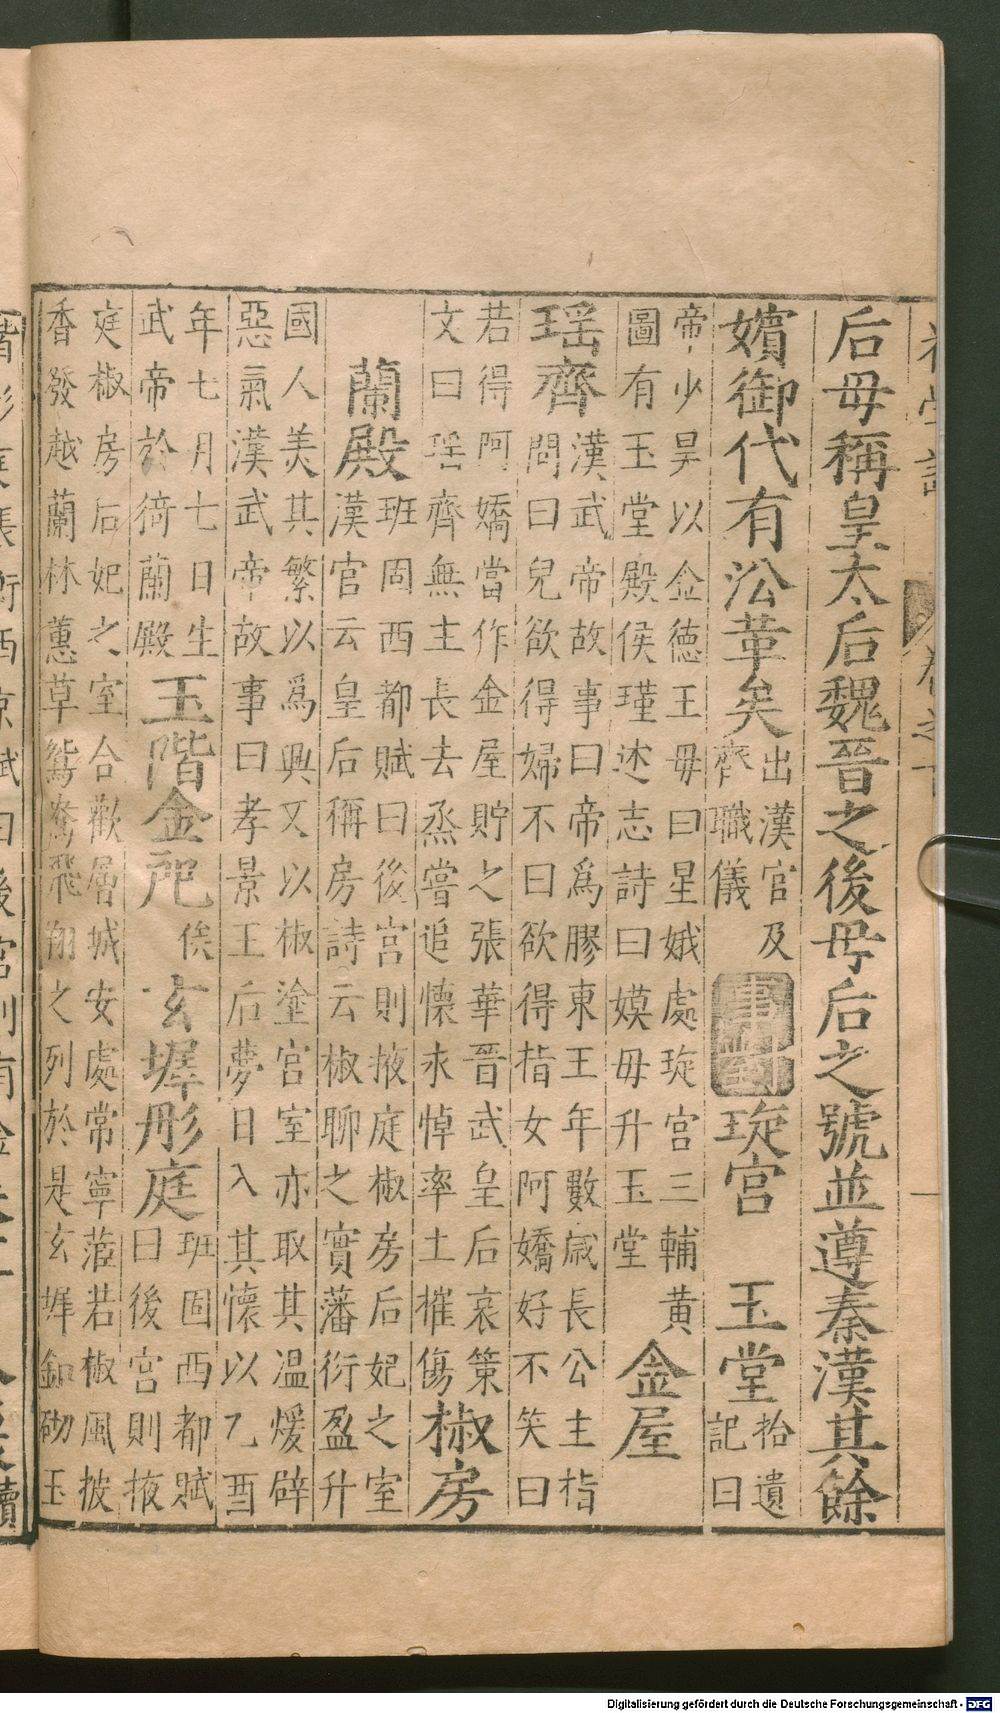 后毋稱皇太后魏晉之後毋后之號並遵秦漢其餘
嬪御代有沿革矣出漢官及齊職儀
事對璇宮 玉堂拾遺記曰
帝少昊以金德王毋曰星娥處琁宮三輔黃圖有玉堂殿侯瑾述志詩曰嫫毋升玉堂
金屋
瑶齊漢武帝故事曰帝爲膠東王年數歲長公主指問曰兒欲得婦不曰欲得指女阿嬌好不笑曰
若得阿嬌當作金屋貯之張華晉武皇后哀策文曰瑶齊無主長去烝嘗追懷永悼率土摧傷
椒房
蘭殿班固西都賦曰後宮則掖庭椒房后妃之室漢官云皇后稱房詩云椒聊之實蕃衍盈升
國人美其繁以爲興又以椒塗宮室亦取其温煖辟惡氣漢武帝故事曰孝景王后夢日入其懷以乙酉
年七月七日生武帝於猗蘭殿
玉階金戺俟玄墀彤庭班固西都賦曰後宮則掖
庭椒房后妃之室合歡層城安處常寧茝若椒風披香發越蘭林蕙草鴛鸞飛翔之列於是玄墀釦砌玉
卷之十
一
Digitalisierung gefördert durch die Deutsche Forschungsgemeinschaft - DFG